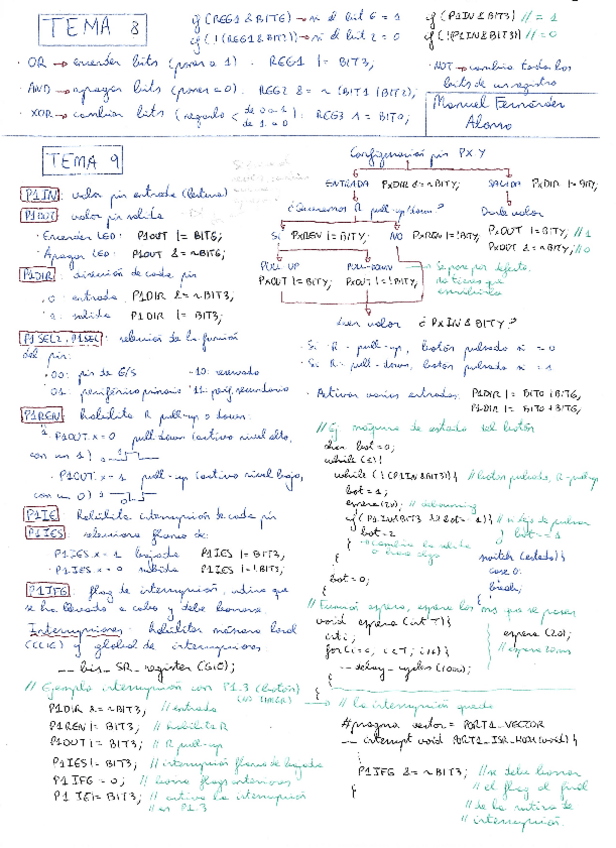 TEMA 8
if (REG1 & BIT6) → si el bit 6 = 1
if (!(REG1 & BIT3)) → si el bit 2 = 0
if (P1IN & BIT3) // = 1
if (!P1IN & BIT3)) // = 0
· OR → encender bits (poner a 1). REG1 |= BIT3;
· AND → apagar bits (poner a 0). REG2 &= ~(BIT1|BIT2);
· XOR → cambiar bits (segundo < de 0 a 1 de 1 a 0): REG3 ^= BIT0;
· NOT → cambia todos los
bits de un registro
Manuel Fernández
Alonso
TEMA 9
P1IN: valor pin entrada (lectura)
P1OUT: valor pin salida
· Encender LED: P1OUT |= BIT6;
· Apagar LED: P1OUT &= ~BIT6;
P1DIR: dirección de cada pin
· 0: entrada P1DIR &= ~BIT3;
· 1: salida P1DIR |= BIT3;
P1SEL2, P1SEL: selección de la función
del pin:
· 00: pin de E/S - 10: reservado
· 01: periférico primario '11: perif. secundario
P1REN: habilita R pull-up o down:
· P1OUT.x = 0 pull down (activo nivel alto,
con un 1)
· P1OUT.x = 1 pull-up (activo nivel bajo,
con un 0)
P1IE: Habilita interrupción de cada pin
P1IES: selecciona flanco de:
· P1IES.x = 1 bajada P1IES |= BIT3;
· P1IES.x = 0 subida P1IES |= !BIT3;
P1IFG: flag de interrupción, indica que
se ha llevado a cabo y debe borrarse
Interrupciones: habilitar máscara local
y global de interrupciones
__bis_SR_register(GIE);
// Ejemplo interrupción con P1.3 (botón)
P1DIR &= ~BIT3; // entrada
P1REN |= BIT3; // habilita R
P1OUT |= BIT3; // R pull-up
P1IES |= BIT3; // interrupción flanco de bajada
P1IFG = 0; // borra flags anteriores
P1IE |= BIT3; // activa la interrupción
// en P1.3
Configuración pin PXY
ENTRADA PxDIR &= ~BITY; SALIDA PxDIR |= BITY;
¿Queremos R pull-up/down? Darle valor
SÍ PxREN |= BITY; NO PxREN |= !BITY; PxOUT |= BITY; // 1
PxOUT &= ~BITY; // 0
PULL UP PULL-DOWN Se pone por defecto.
PxOUT |= BITY; PxOUT |= !BITY; no tienes que
escribirlo
Leer valor ¿PxIN & BITY?
· Si R - pull-up, botón pulsado si = 0
· Si R - pull-down, botón pulsado si = 1
· Activar varias entradas: P1DIR |= BIT0|BIT6;
P1DIR |= BIT0+BIT6;
// Ej máquina de estado del botón
char bot = 0;
while (1){
while (!(P1IN & BIT3)) { // botón pulsado, R-pullup
bot = 1;
espera(20); // debouncing
if (P1IN & BIT3 && bot == 1) { // si dejo de pulsar
bot = 2 // bot = 1
// cambia la salida
o hace algo
switch (estado){
case 0:
break;
}
bot = 0;
}
// Función espera, espera los ms que se pasen
void espera (int T){
int i;
for (i=0; i<T; i++){
__delay_cycles(1000);
}
espera (20);
// espera 20 ms
// la interrupción queda
#pragma vector = PORT1_VECTOR
__interrupt void PORT1_ISR_HOOK(void){
P1IFG &= ~BIT3; // se debe borrar
// el flag al final
// de la rutina de
// interrupción.
}